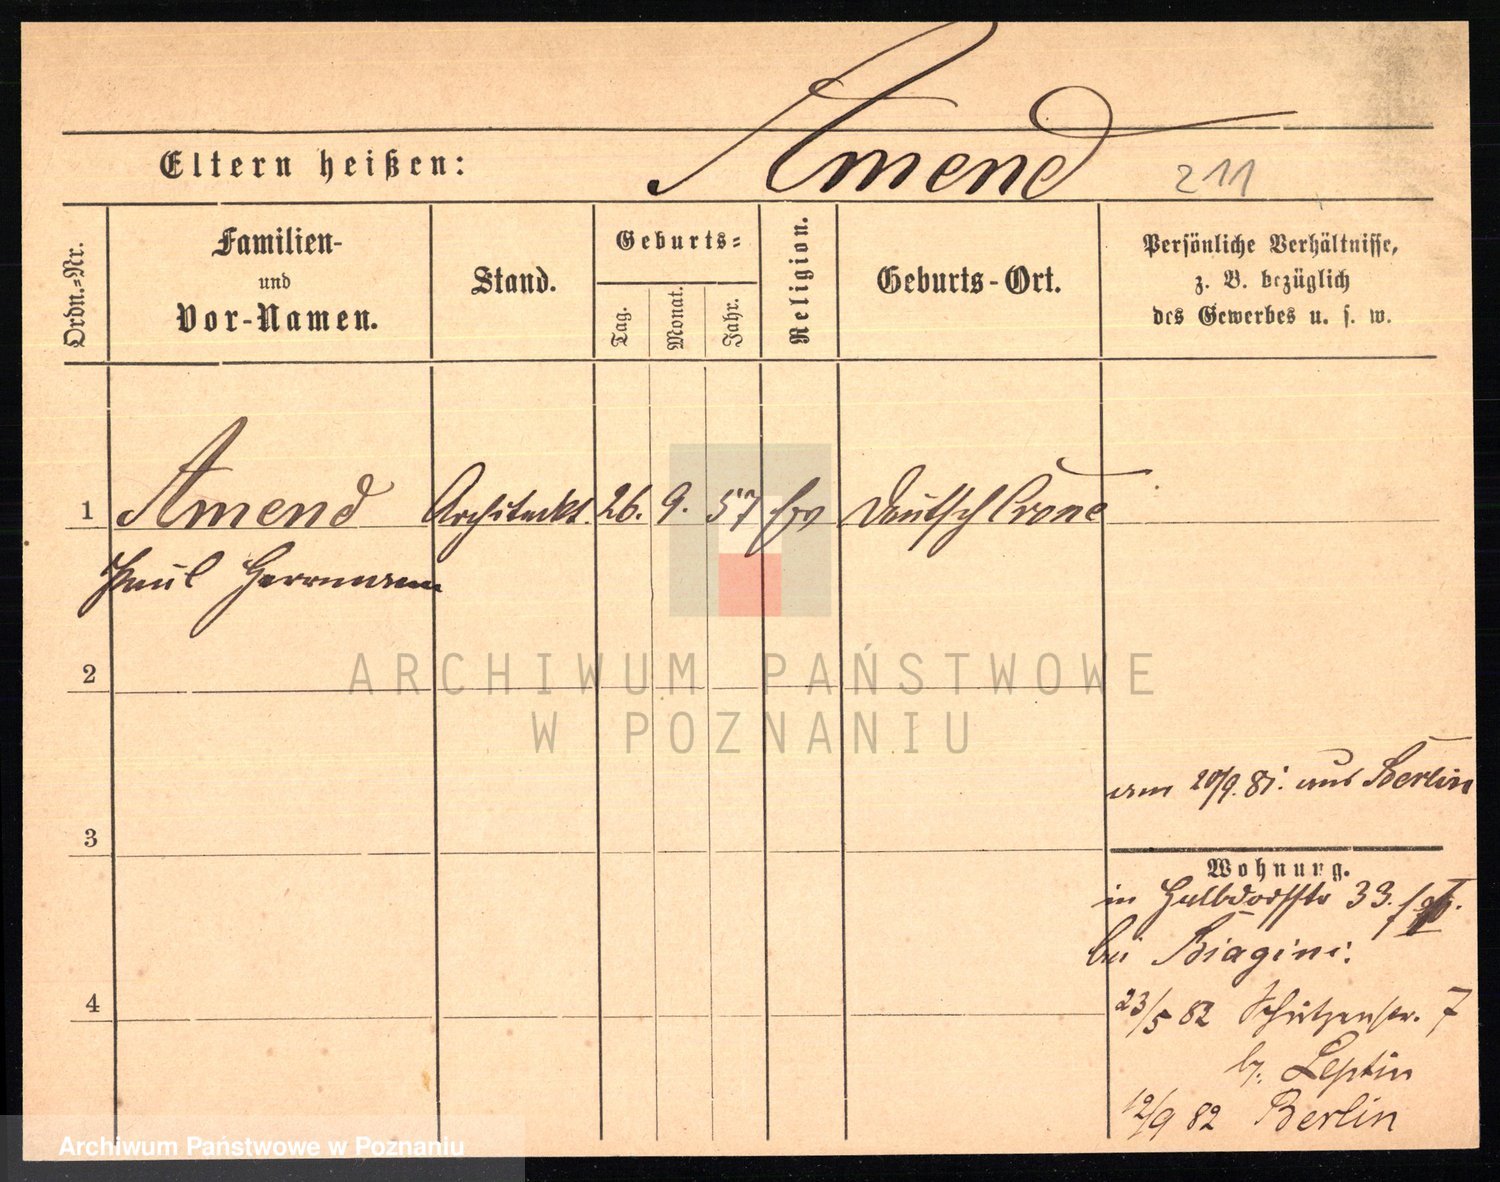 Amend
Eltern heißen:
211
Ordn.-Nr.
Familien-
und
Vor-Namen.
Stand.
Geburts-
Tag.
Monat.
Jahr.
Religion.
Geburts-Ort.
Persönliche Verhältnisse,
z. B. bezüglich
des Gewerbes u. s. w.
1 Amend Architeckt. 26. 9. 57 Ev Deutsch Crone
Paul Herrmann
2
ARCHIWUM PAŃSTWOWE
W POZNANIU
am 20/9. 81. aus Berlin
3
Wohnung.
in Halbdorfstr 33.
bei Biagini.
4
23/5 82 Schützenstr. 7
b. Leptin
12/9 82 Berlin
Archiwum Państwowe w Poznaniu